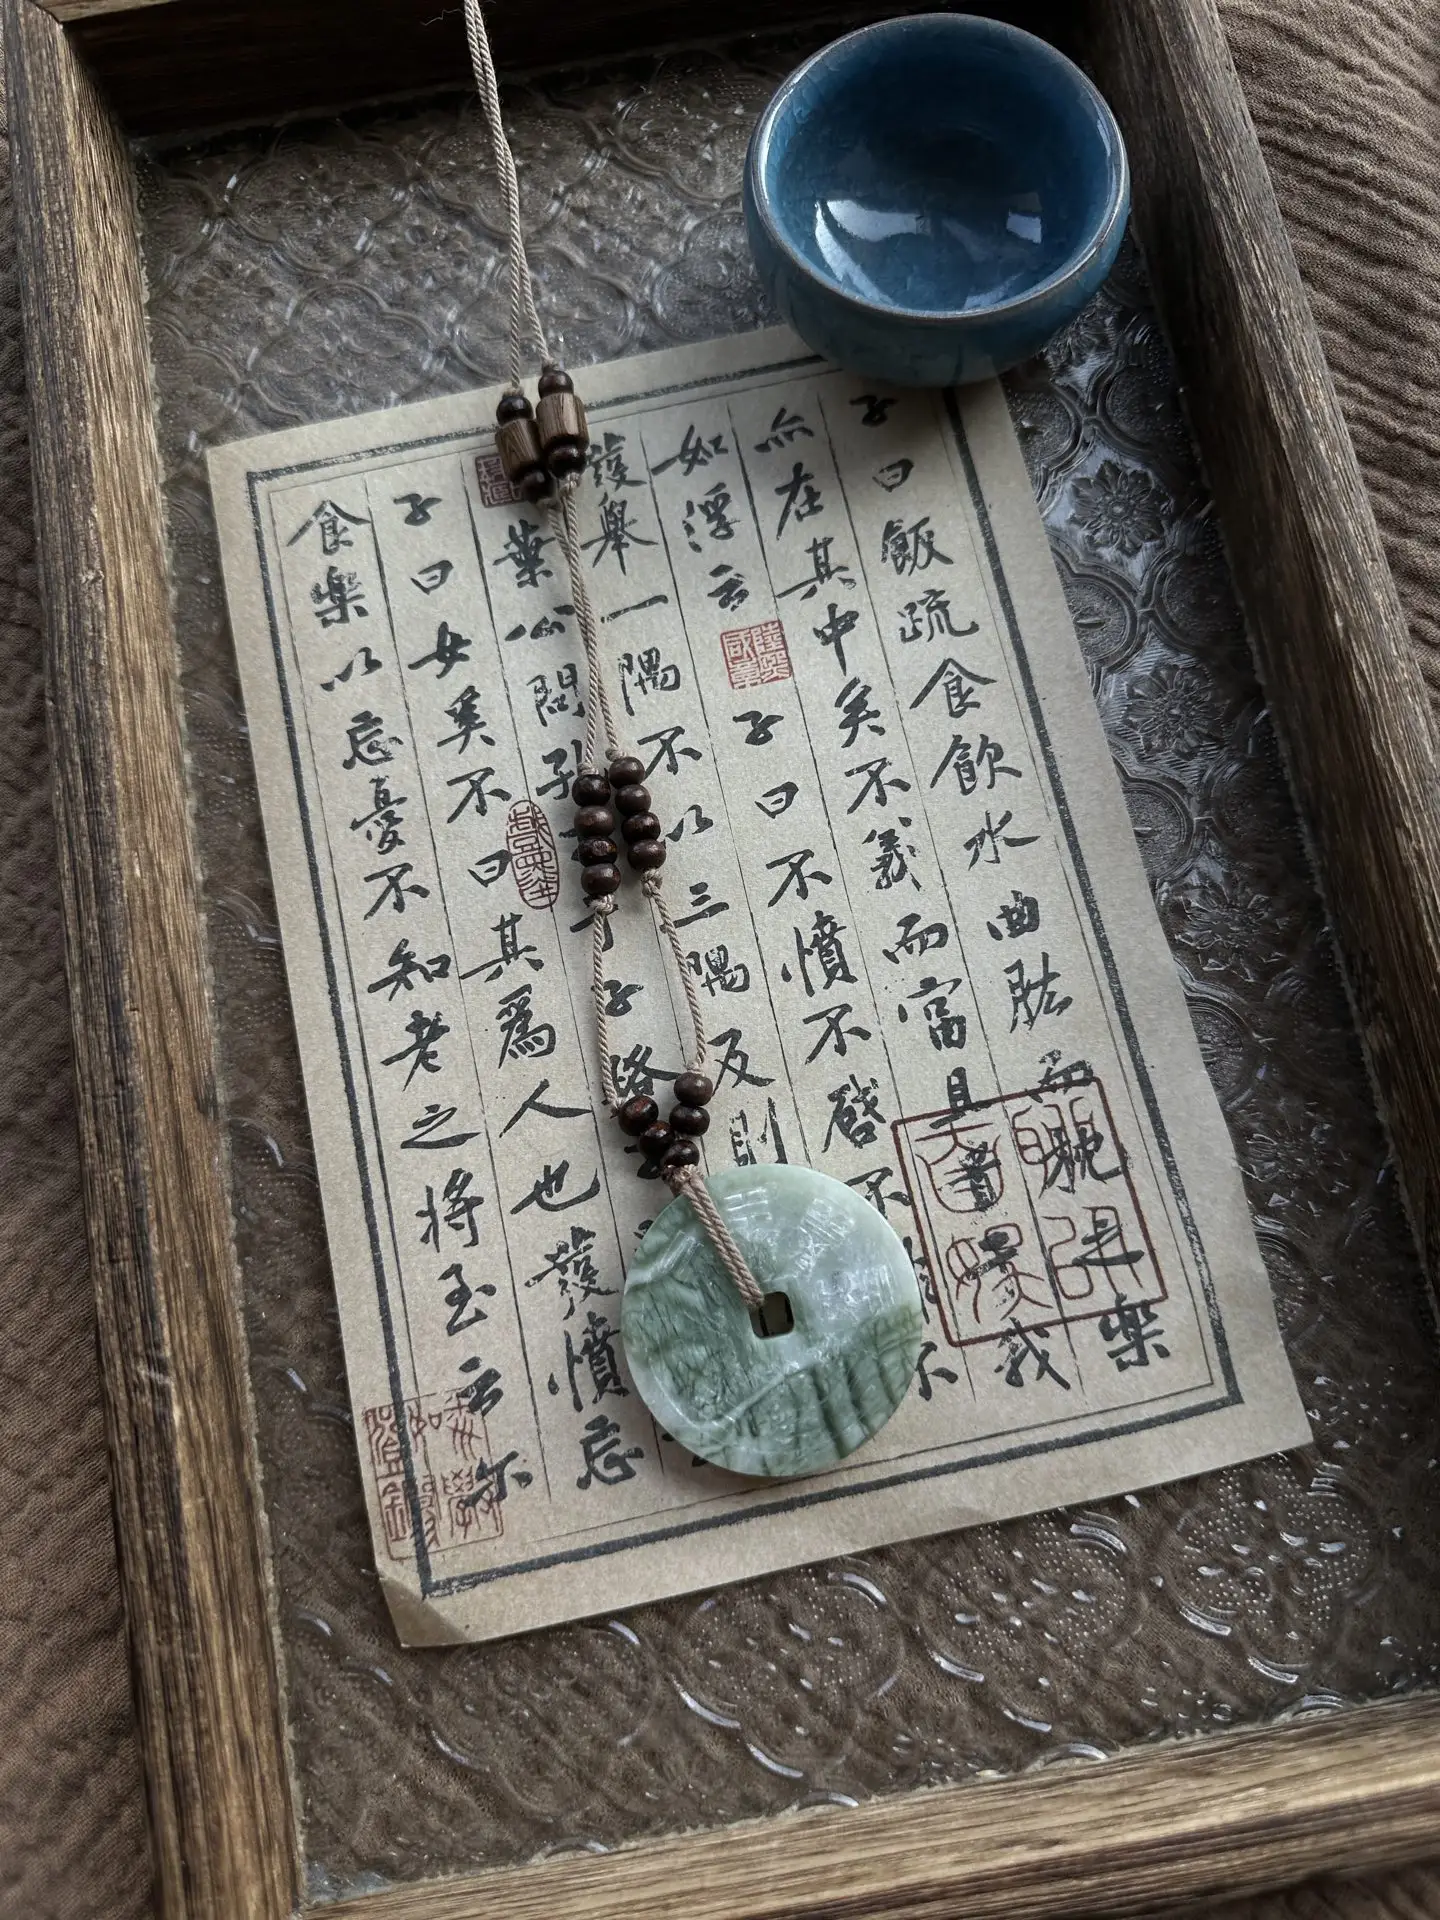 子曰飯疏食飲水曲肱而枕之樂
亦在其中矣不義而富且貴於我
如浮云子曰不憤不啓不悱不
發舉一隅不以三隅反則
葉公問孔子於子路
子曰女奚不曰其爲人也發憤忘
食樂以忘憂不知老之將至云尔